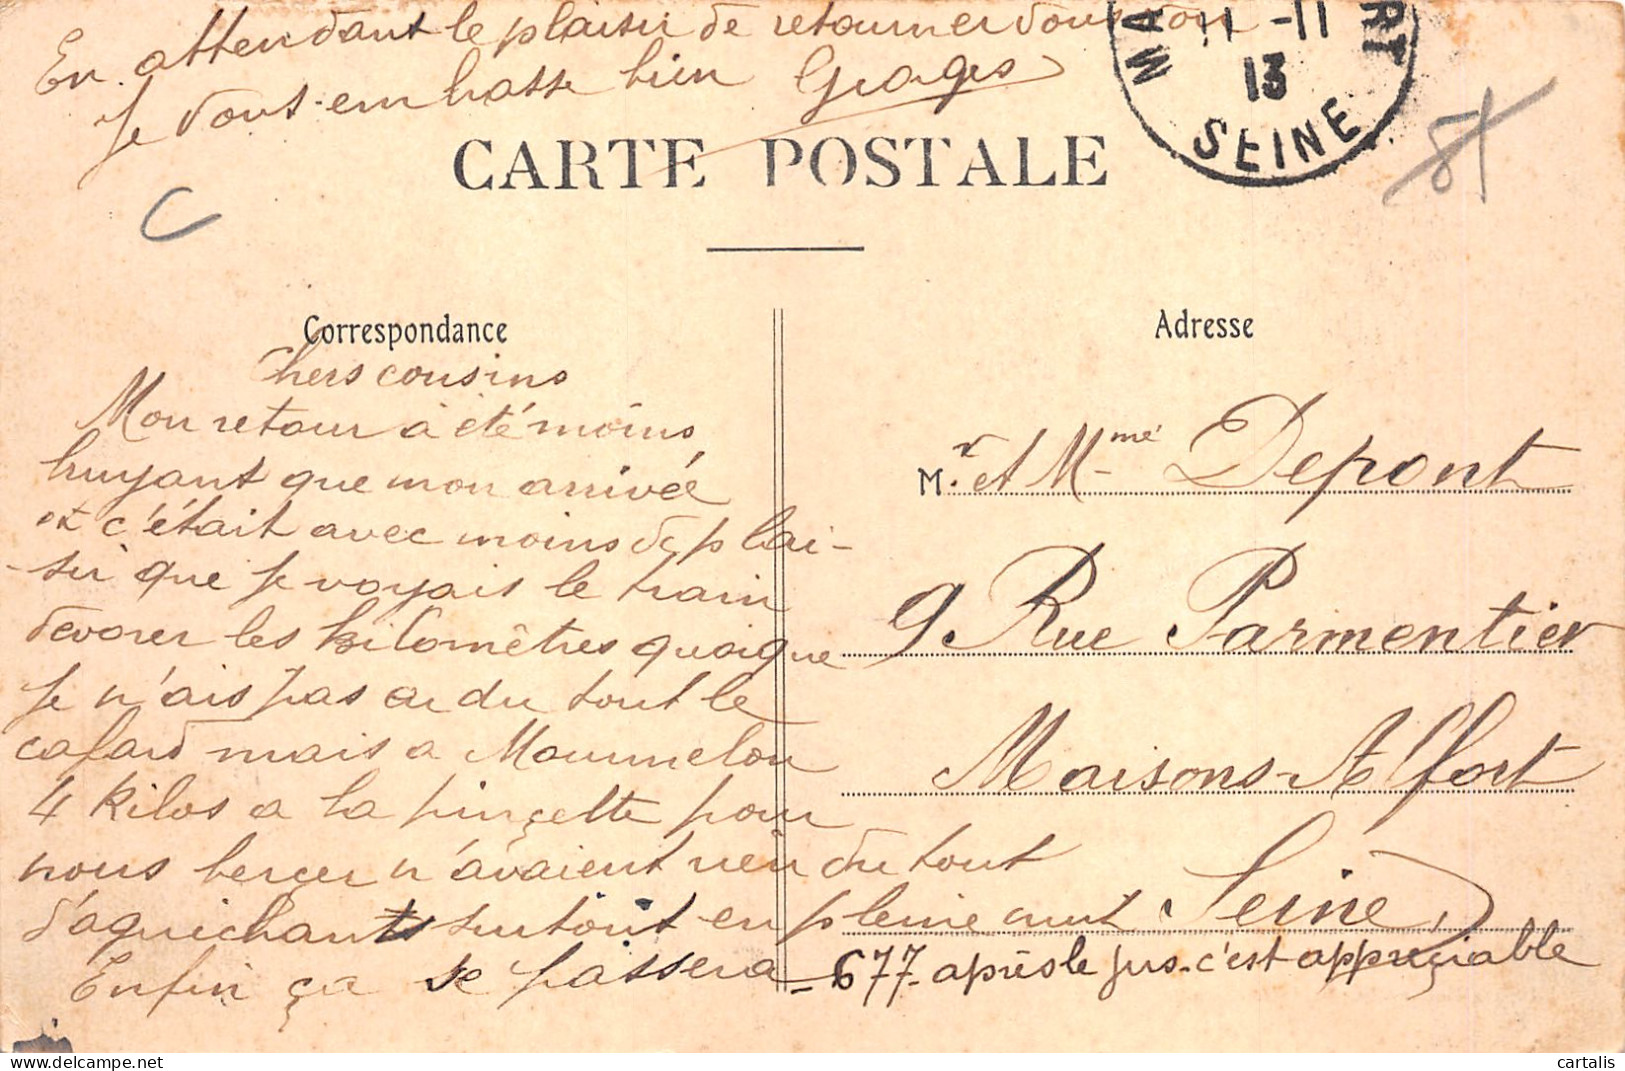 En attendant le plaisir de retourner vous voir
Je vous embrasse bien Georges
MA RT
11 -11
13
SEINE
CARTE POSTALE
C
Correspondance
Chers cousins
Mon retour à été moins
bruyant que mon arrivée
et c'était avec moins de plai-
-sir que je voyais le train
devorer les kilomètres quoique
je n'ais pas eu du tout le
cafard mais a Mourmelon
4 kilos a la pinçette pour
nous berçer n'avaient rien du tout
d'aguichants surtout en pleine nuit
Enfin ça se passera - 677 - après le jus c'est appreçiable
Adresse
Mr et Mme Depont
9 Rue Parmentier
Maisons-Alfort
Seine
cartalis